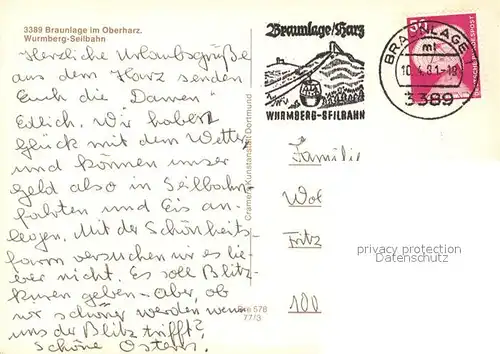 3389 Braunlage im Oberharz.
Wurmberg-Seilbahn
Herzliche Urlaubsgrüße
aus dem Harz senden
Euch die "Damen"
Edlich. Wir haben
Glück mit dem Wetter
und können unser
Geld also in Seilbahn-
fahrten und Eis an-
legen. Mit der Schönheits-
farm versuchen wir es lie-
ber nicht. Es soll Blitz-
kuren geben - Aber, ob
wir schöner werden wenn
uns der Blitz trifft?
Schöne Ostern.
Cramers Kunstanstalt Dortmund
Bre 578
77/3
Braunlage/Harz
WURMBERG-SEILBAHN
50
DEUTSCHE BUNDESPOST
BRAUNLAGE
ml
10.4.81-18
3389
Familie
Wol
Fritz
100
privacy protection
Datenschutz